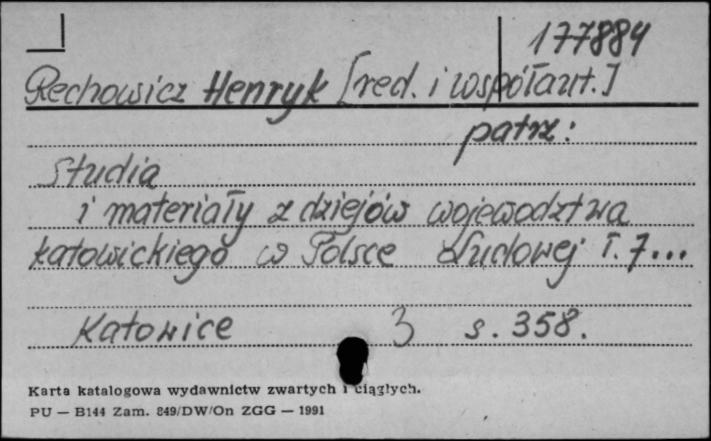 177884
Rechowicz Henryk [red. i współaut.]
patrz:
Studia
i materiały z dziejów województwa
katowickiego w Polsce Ludowej T. 7...
Katowice 3 s. 358.
Karta katalogowa wydawnictw zwartych i ciągłych.
PU — B144 Zam. 849/DW/On ZGG — 1991